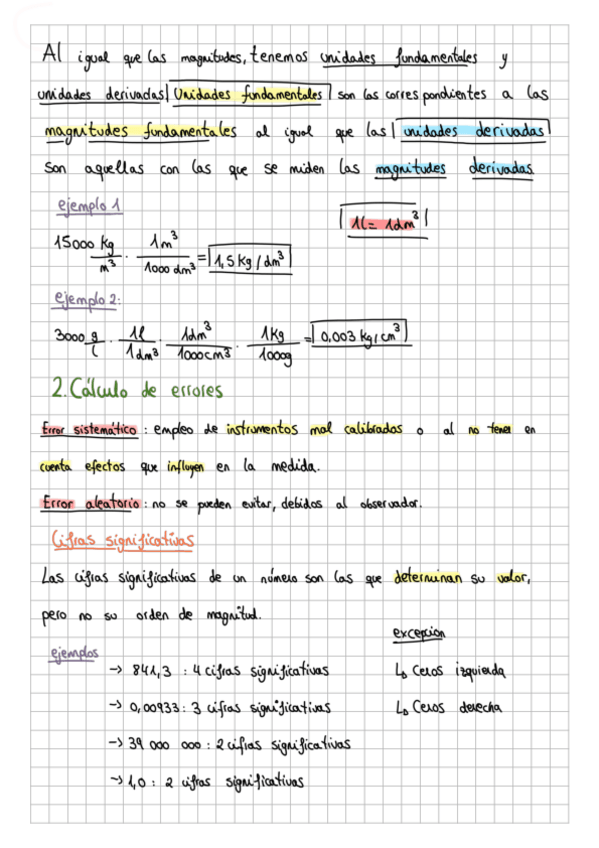 Al igual que las magnitudes, tenemos unidades fundamentales y
unidades derivadas| Unidades fundamentales | son las correspondientes a las
magnitudes fundamentales al igual que las | unidades derivadas |
son aquellas con las que se miden las magnitudes derivadas.
ejemplo 1
1l = 1dm³
15000 kg/m³ · 1m³/1000 dm³ = 1,5 kg/dm³
ejemplo 2:
3000 g/l · 1l/1dm³ · 1dm³/1000cm³ · 1kg/1000g = 0,003 kg/cm³
2. Cálculo de errores
Error sistemático : empleo de instrumentos mal calibrados o al no tener en
cuenta efectos que influyen en la medida.
Error aleatorio : no se pueden evitar, debidos al observador.
Cifras significativas
Las cifras significativas de un número son las que determinan su valor,
pero no su orden de magnitud.
excepcion
ejemplos
-> 841,3 : 4 cifras significativas
↳ Ceros izquierda
-> 0,00933 : 3 cifras significativas
↳ Ceros derecha
-> 39 000 000 : 2 cifras significativas
-> 1,0 : 2 cifras significativas